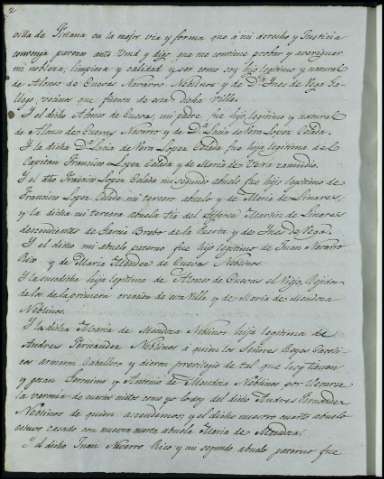 villa de Tirana en la mejor via y forma que á mi derecho y Justicia
convenga parezco ante Vmd y digo que me contiene probar y averiguar
mi nobleza, limpieza y calidad y ser como soy hijo legitimo y natural
de Alonso de Cuevas Navarro Nobilnos y de Dª Ines de Vega
vecinos que fueron de esta dicha Villa.
Y el dicho Alonso de Cuevas, mi padre, fue hijo legitimo y natural
de Alonso de Cuevas Navarro y de Dª Lucia de Vera Lopez
Y la dicha Dª Lucia de Vera Lopez fue hija legitima del
Capitan Francisco Lopez y de Maria de Vera
Y el dho Francisco Lopez mi segundo abuelo fue hijo legitimo de
Francisco Lopez mi tercero abuelo y de Maria de Linares,
y la dicha mi tercera abuela tia del Martin de Linares
descendientes de Garcia Bravo de la y de Ines de Vega.
Y el dicho mi abuelo paterno fue hijo legitimo de Juan Navarro
Rico y de Maria Mendez de Cuevas Nobilnos.
Y la susodicha hija legitima de Alonso de Cuevas el Viejo, Rejidor
de los de la primera creacion de esta Villa y de Maria de Mendoza
Nobilnos.
Y la dicha Maria de Mendoza Nobilnos hija legitima de
Andres Fernandez Nobilnos á quien los Señores Reyes Catoli-
cos armaron Caballero y dieron previlegio de tal que hoy tienen
y gozan Geronimo y Antonio de Mendoza Nobilnos por
la varonia de cuartos nietos como yo lo soy del dicho Andres Fernandez
Nobilnos de quien decendemos y el dicho nuestro cuarto abuelo
estuvo casado con nuestra cuarta abuela Maria de Mendoza.
Y el dicho Juan Navarro Rico y mi segundo abuelo paterno fue